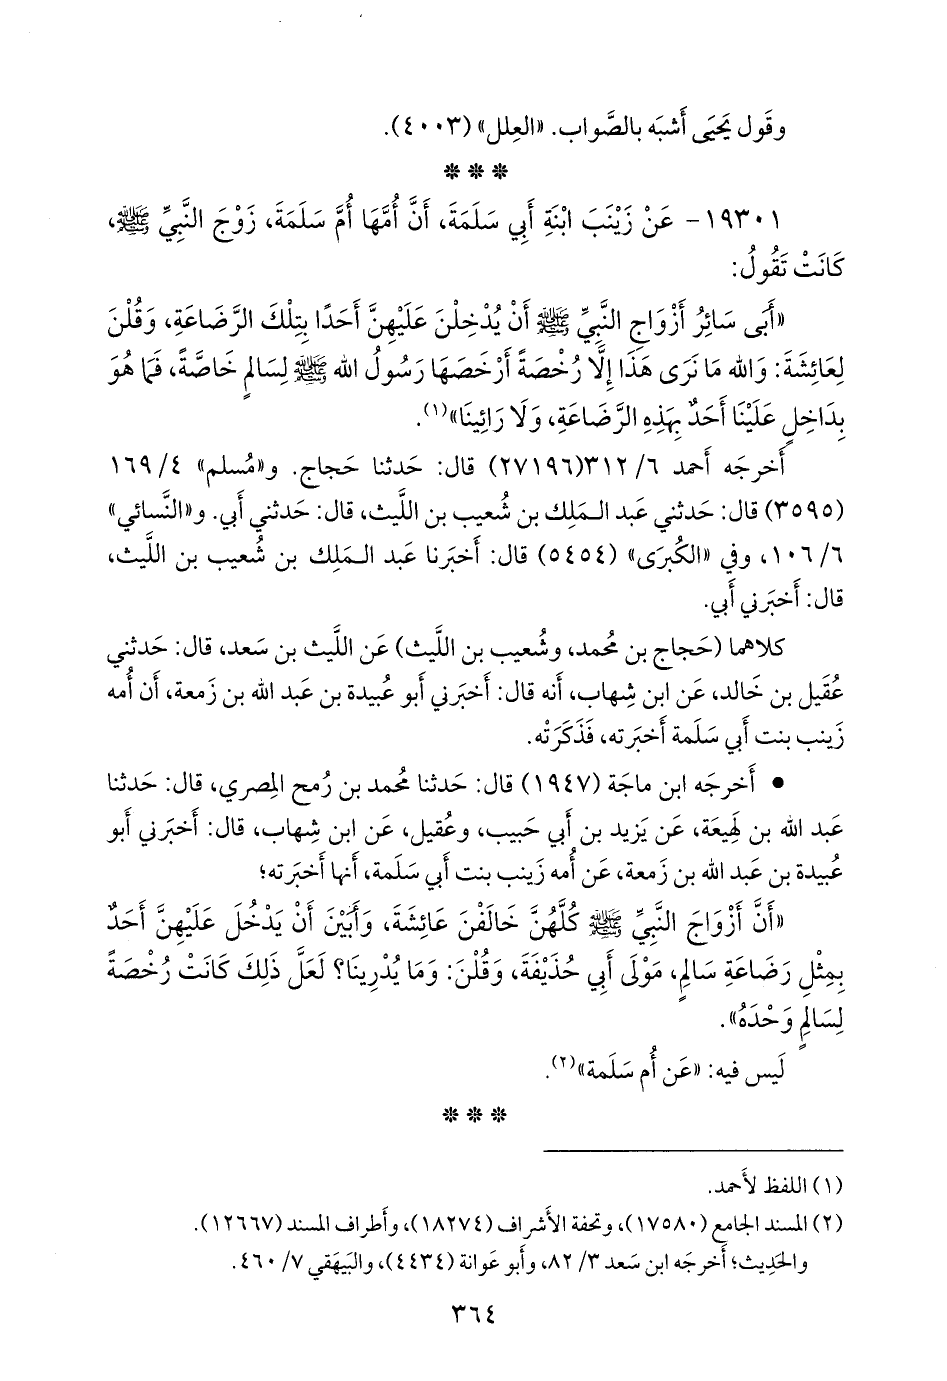 وقَول يَحيَى أَشبَه بالصَّواب. «العِلل» (٤٠٠٣).
* * *
١٩٣٠١- عَنْ زَيْنَبَ ابْنَةِ أَبِي سَلَمَةَ، أَنَّ أُمَّهَا أُمَّ سَلَمَةَ، زَوْجَ النَّبِيِّ ﷺ،
كَانَتْ تَقُولُ:
«أَبَى سَائِرُ أَزْوَاجِ النَّبِيِّ ﷺ أَنْ يُدْخِلْنَ عَلَيْهِنَّ أَحَدًا بِتِلْكَ الرَّضَاعَةِ، وَقُلْنَ
لِعَائِشَةَ: وَالله مَا نَرَى هَذَا إِلَّا رُخْصَةً أَرْخَصَهَا رَسُولُ الله ﷺ لِسَالِمٍ خَاصَّةً، فَمَا هُوَ
بِدَاخِلٍ عَلَيْنَا أَحَدٌ بِهَذِهِ الرَّضَاعَةِ، وَلَا رَائِينَا»(١).
أَخرجَه أَحمد ٦/ ٣١٢(٢٧١٩٦) قال: حَدثنا حَجاج. و«مُسلم» ٤/ ١٦٩
(٣٥٩٥) قال: حَدثني عَبد الـمَلِك بن شُعيب بن اللَّيث، قال: حَدثني أَبي. و«النَّسائي»
٦/ ١٠٦، وفي «الكُبرَى» (٥٤٥٤) قال: أَخبَرنا عَبد الـمَلِك بن شُعيب بن اللَّيث،
قال: أَخبَرني أَبي.
كلاهما (حَجاج بن مُحمد، وشُعيب بن اللَّيث) عَن اللَّيث بن سَعد، قال: حَدثني
عُقَيل بن خَالد، عَن ابن شِهاب، أَنه قال: أَخبَرني أَبو عُبيدة بن عَبد الله بن زَمعة، أَن أُمه
زَينب بنت أَبي سَلَمة أَخبَرته، فَذَكَرَتْه.
• أَخرجَه ابن ماجَة (١٩٤٧) قال: حَدثنا مُحمد بن رُمح المِصري، قال: حَدثنا
عَبد الله بن لَهيعَة، عَن يَزيد بن أَبي حَبيب، وعُقيل، عَن ابن شِهاب، قال: أَخبَرني أَبو
عُبيدة بن عَبد الله بن زَمعة، عَن أُمه زَينب بنت أَبي سَلَمة، أَنها أَخبَرته؛
«أَنَّ أَزْوَاجَ النَّبِيِّ ﷺ كُلَّهُنَّ خَالَفْنَ عَائِشَةَ، وَأَبَيْنَ أَنْ يَدْخُلَ عَلَيْهِنَّ أَحَدٌ
بِمِثْلِ رَضَاعَةِ سَالِمٍ، مَوْلَى أَبِي حُذَيْفَةَ، وَقُلْنَ: وَمَا يُدْرِينَا؟ لَعَلَّ ذَلِكَ كَانَتْ رُخْصَةً
لِسَالِمٍ وَحْدَهُ».
لَيس فيه: «عَن أُم سَلَمة»(٢).
* * *
(١) اللفظ لأَحمد.
(٢) المسند الجامع (١٧٥٨٠)، وتحفة الأَشراف (١٨٢٧٤)، وأَطراف المسند (١٢٦٦٧).
والحَدِيث؛ أَخرجَه ابن سَعد ٣/ ٨٢، وأَبو عَوانة (٤٤٣٤)، والبَيهَقي ٧/ ٤٦٠.
٣٦٤